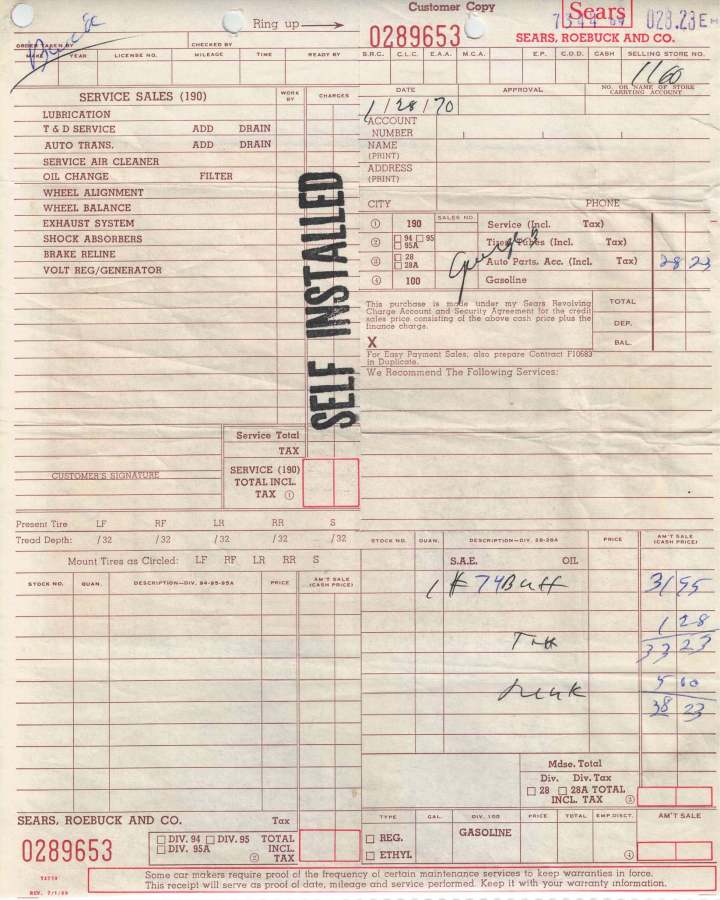 Customer Copy
Ring up
0289653
Sears
028.23E
SEARS, ROEBUCK AND CO.
ORDER TAKEN BY
CHECKED BY
MAKE YEAR LICENSE NO. MILEAGE TIME READY BY
S.R.C. C.L.C. E.A.A. M.C.A. E.P. C.O.D. CASH SELLING STORE NO.
1160
DATE APPROVAL NO. OR NAME OF STORE CARRYING ACCOUNT
1/28/70
SERVICE SALES (190) WORK BY CHARGES
LUBRICATION
T & D SERVICE ADD DRAIN
AUTO TRANS. ADD DRAIN
SERVICE AIR CLEANER
OIL CHANGE FILTER
WHEEL ALIGNMENT
WHEEL BALANCE
EXHAUST SYSTEM
SHOCK ABSORBERS
BRAKE RELINE
VOLT REG/GENERATOR
SELF INSTALLED
ACCOUNT NUMBER
NAME (PRINT)
ADDRESS (PRINT)
CITY PHONE
SALES NO.
1 190 Service (Incl. Tax)
2 94 95 95A Tires Tubes (Incl. Tax)
3 28 28A Auto Parts, Acc. (Incl. Tax) 28 23
4 100 Gasoline
This purchase is made under my Sears Revolving
Charge Account and Security Agreement for the credit
sales price consisting of the above cash price plus the
finance charge.
TOTAL
DEP.
BAL.
X
For Easy Payment Sales, also prepare Contract F10683
in Duplicate.
We Recommend The Following Services:
Service Total
TAX
CUSTOMER'S SIGNATURE
SERVICE (190)
TOTAL INCL.
TAX 1
Present Tire LF RF LR RR S
Tread Depth: /32 /32 /32 /32 /32
Mount Tires as Circled: LF RF LR RR S
STOCK NO. QUAN. DESCRIPTION—DIV. 94-95-95A PRICE AM'T SALE (CASH PRICE)
STOCK NO. QUAN. DESCRIPTION—DIV. 28-28A PRICE AM'T SALE (CASH PRICE)
S.A.E. OIL
1 74 Batt 31 95
1 28
Tax 33 23
5 00
38 23
Mdse. Total
Div. Div. Tax
28 28A TOTAL
INCL. TAX 3
SEARS, ROEBUCK AND CO. Tax
0289653
DIV. 94 DIV. 95 TOTAL
DIV. 95A INCL.
2 TAX
TYPE GAL. DIV. 100 PRICE TOTAL EMP. DISCT. AM'T SALE
REG. GASOLINE
ETHYL 4
REV. 7/1/69
Some car makers require proof of the frequency of certain maintenance services to keep warranties in force.
This receipt will serve as proof of date, mileage and service performed. Keep it with your warranty information.